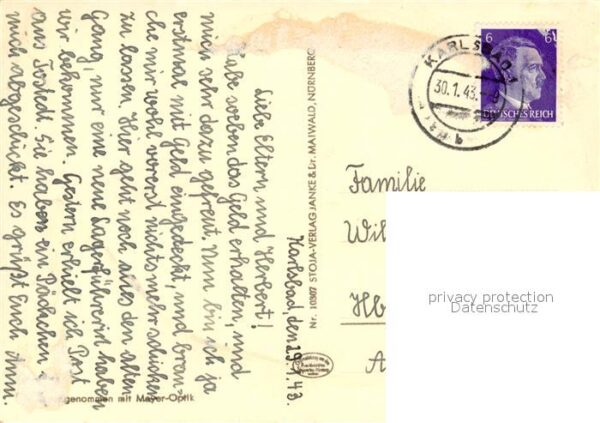 Karlsbad, den 29.1.43.
Liebe Eltern und Herbert!
Habe soeben das Geld erhalten, und
mich sehr dazu gefreut. Nun bin ich ja
erstmal mit Geld eingedeckt, und brau-
che mir wohl vorerst nichts mehr schicken
zu lassen. Hier geht noch alles den alten
Gang, nur eine neue Lagerführerin haben
wir bekommen. Gestern erhielt ich Post
aus Tostedt. Sie haben ein Päckchen
mich abgeschickt. Es grüßt Euch Ann.
genommen mit Meyer-Optik
Nr. 10307 STOJA-VERLAG JANKE & Dr. MAIWALD, NÜRNBERG
6 6
DEUTSCHES REICH
KARLSBAD 1
30.1.43.
b
Familie
Wil
Hb
A
privacy protection
Datenschutz